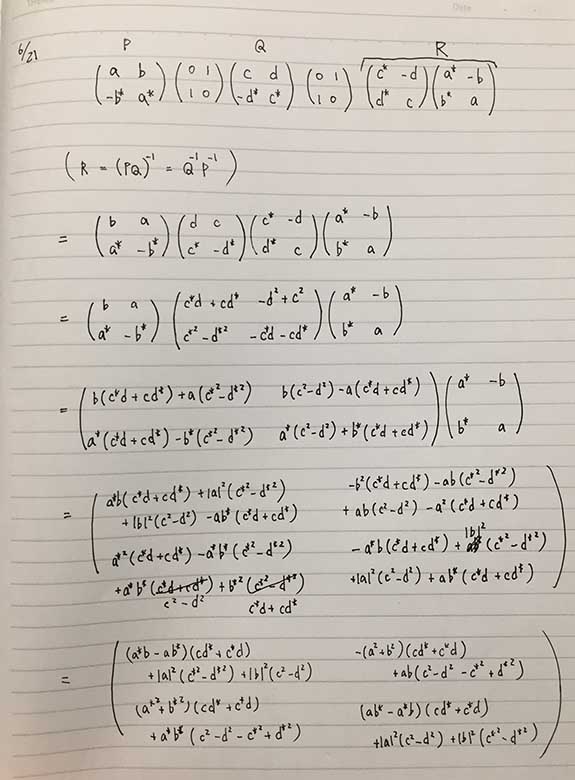 6/21 P Q R
( a b ; -b* a* ) ( 0 1 ; 1 0 ) ( c d ; -d* c* ) ( 0 1 ; 1 0 ) ( c* -d ; d* c ) ( a* -b ; b* a )
( R = (PQ)⁻¹ = Q⁻¹P⁻¹ )
= ( b a ; a* -b* ) ( d c ; c* -d* ) ( c* -d ; d* c ) ( a* -b ; b* a )
= ( b a ; a* -b* ) ( c*d + cd* -d² + c² ; c*² - d*² -c*d - cd* ) ( a* -b ; b* a )
= ( b(c*d + cd*) + a(c*² - d*²) b(c² - d²) - a(c*d + cd*) ; a*(c*d + cd*) - b*(c*² - d*²) a*(c² - d²) + b*(c*d + cd*) ) ( a* -b ; b* a )
= ( a*b(c*d + cd*) + |a|²(c*² - d*²) -b²(c*d + cd*) - ab(c*² - d*²)
+ |b|²(c² - d²) - ab*(c*d + cd*) + ab(c² - d²) - a²(c*d + cd*)
a*²(c*d + cd*) - a*b*(c*² - d*²) - a*b(c*d + cd*) + |b|²(c*² - d*²)
+ a*b*(c² - d²) + b*²(c*d + cd*) + |a|²(c² - d²) + ab*(c*d + cd*) )
= ( (a*b - ab*)(cd* + c*d) -(a² + b²)(cd* + c*d)
+ |a|²(c*² - d*²) + |b|²(c² - d²) + ab(c² - d² - c*² + d*²)
(a*² + b*²)(cd* + c*d) (ab* - a*b)(cd* + c*d)
+ a*b*(c² - d² - c*² + d*²) + |a|²(c² - d²) + |b|²(c*² - d*²) )